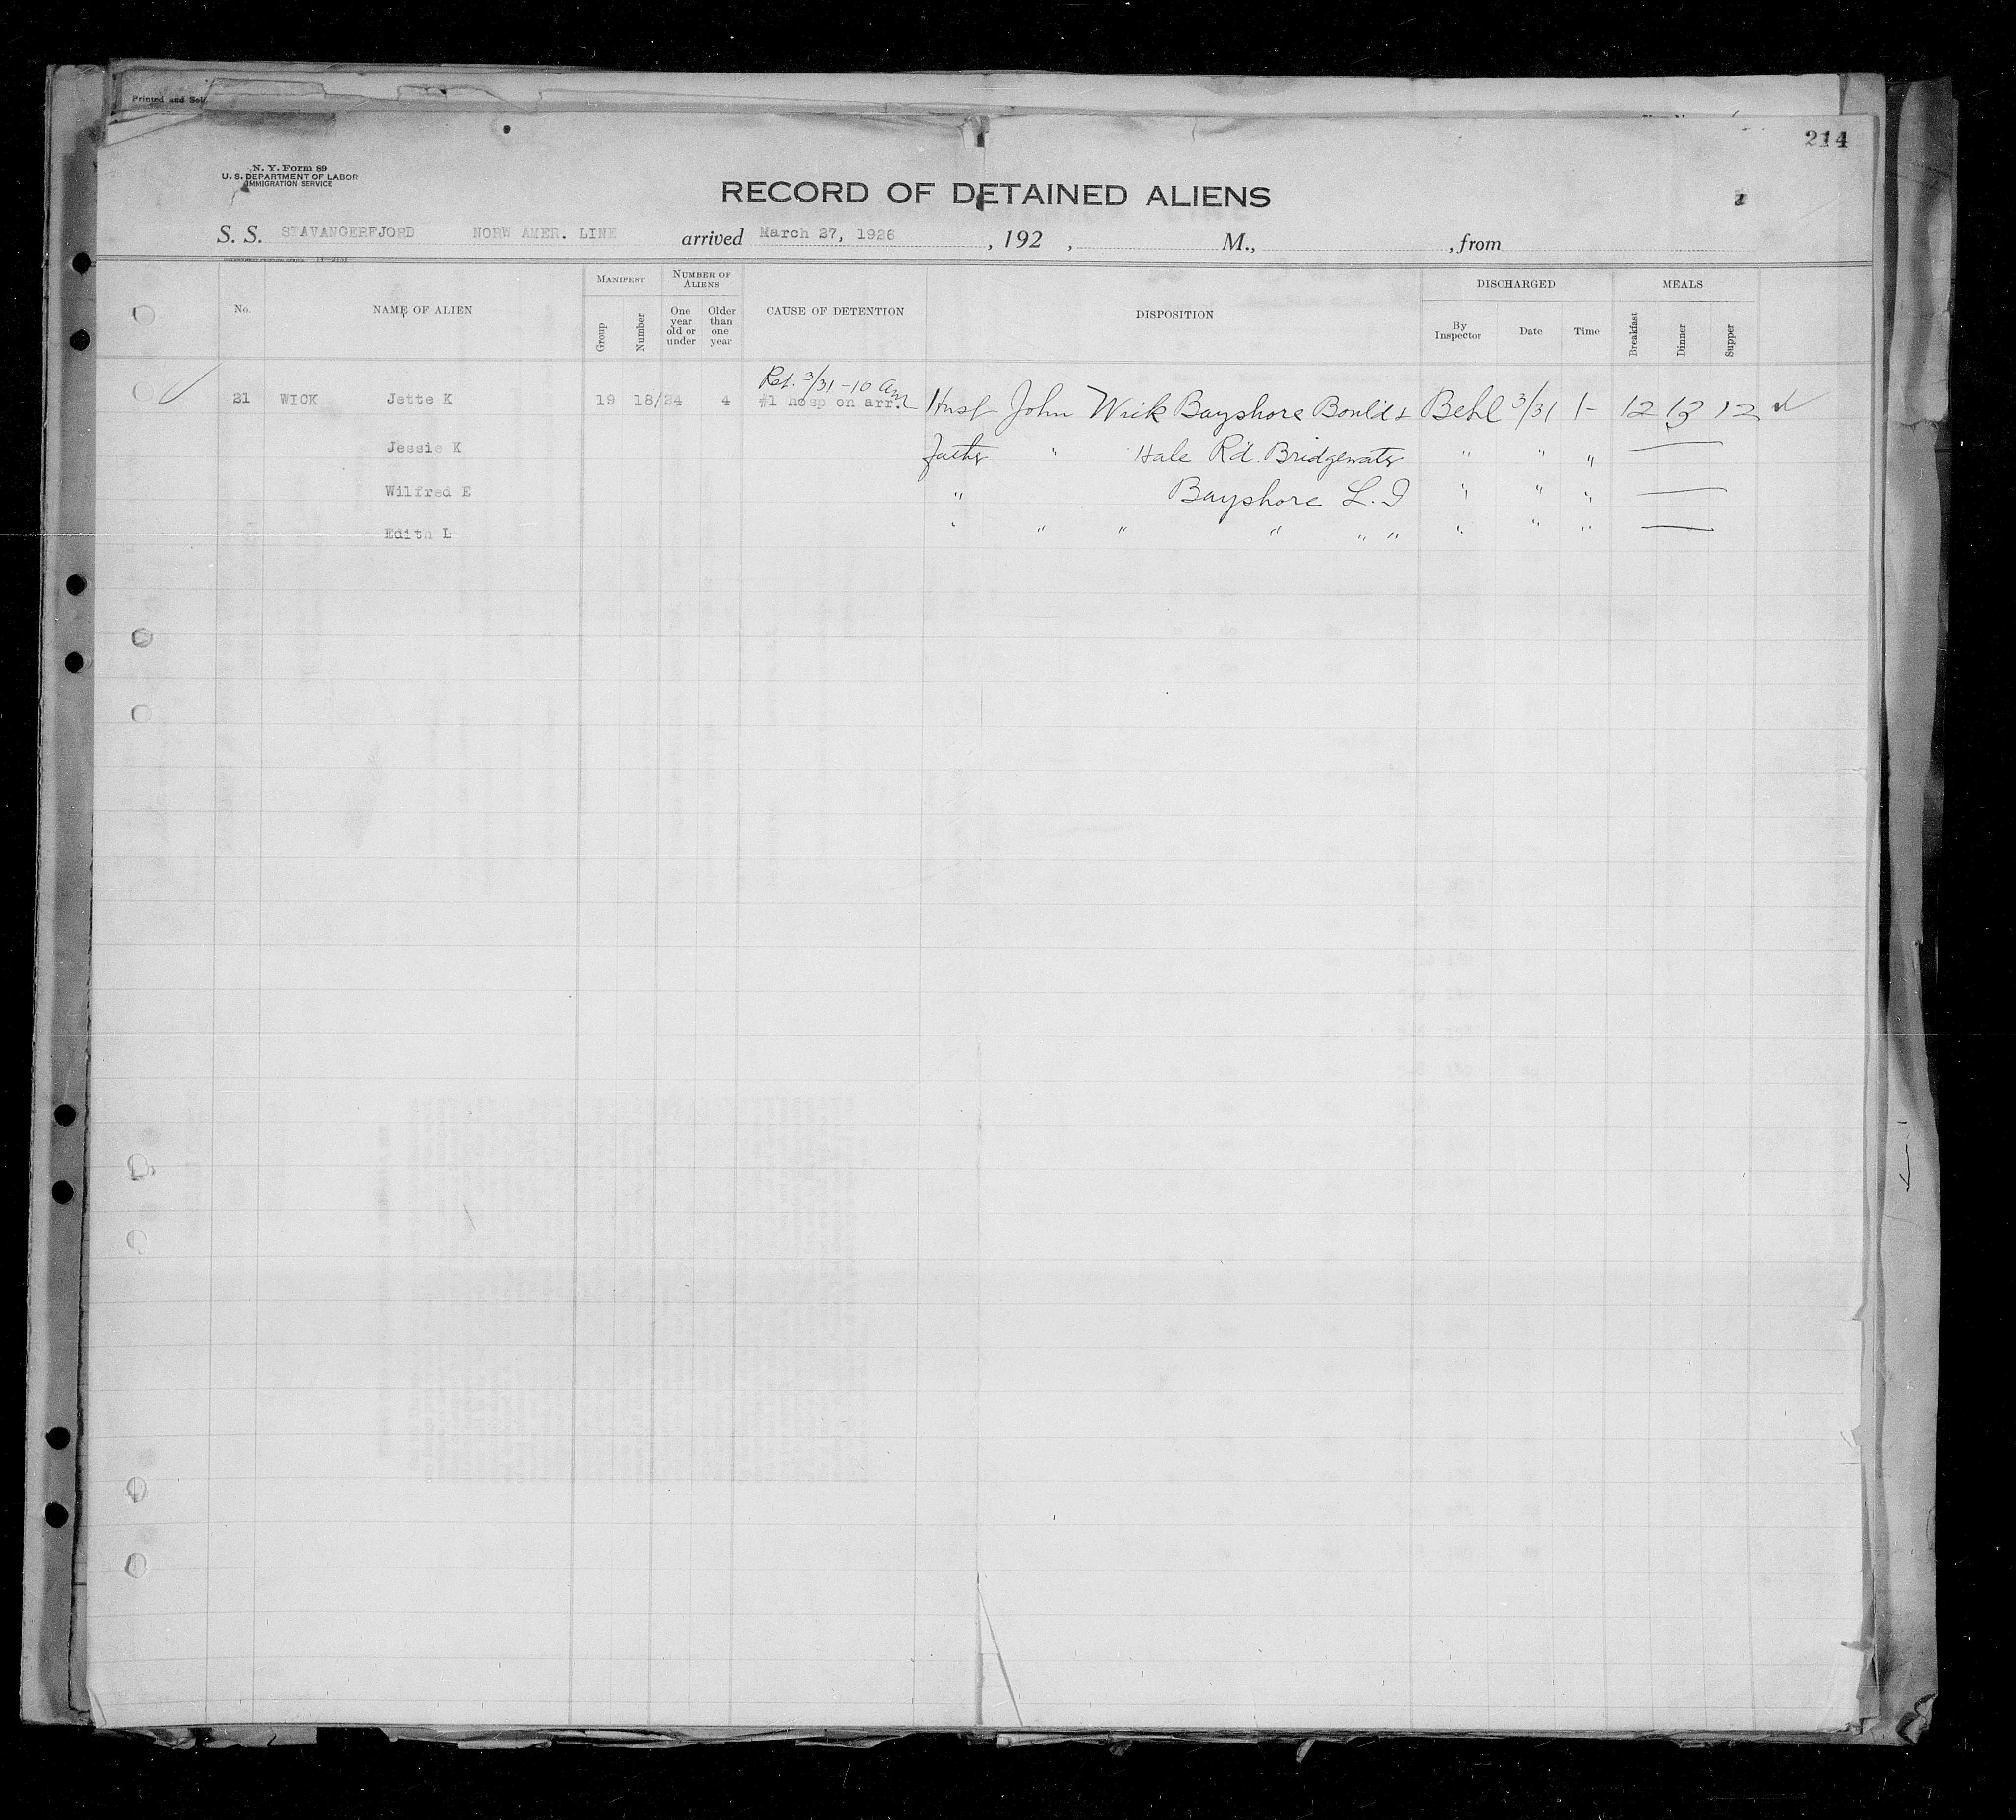 Printed and Sol
214
N. Y. Form 89
U. S. DEPARTMENT OF LABOR
IMMIGRATION SERVICE
RECORD OF DETAINED ALIENS
S. S. STAVANGERFJORD NORW AMER. LINE arrived March 27, 1926 , 192 , M., , from
No. NAME OF ALIEN MANIFEST Group Number NUMBER OF ALIENS One year old or under Older than one year CAUSE OF DETENTION DISPOSITION DISCHARGED By Inspector Date Time MEALS Breakfast Dinner Supper
Ret. 3/31 - 10 am
21 WICK Jette K 19 18/24 4 #1 hosp on arr. Husb John Wick Bayshore Boul'd & Behl 3/31 1- 12 13 12
Jessie K Father " Hale Rd. Bridgewater " " "
Wilfred E " Bayshore L. I " " "
Edith L " " " " " " " " "